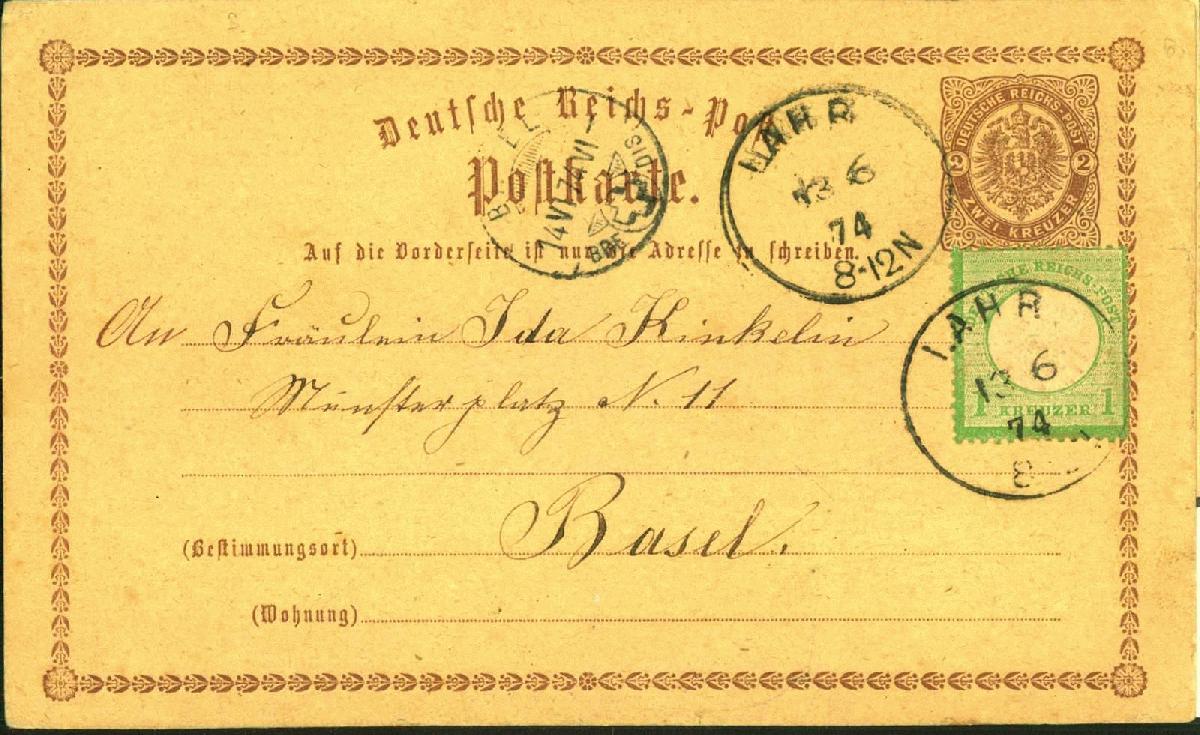 Deutsche Reichs-Post
Postkarte.
Auf die Vorderseite ist nur die Adresse zu schreiben.
DEUTSCHE REICHS-POST
2 2
ZWEI KREUZER
LAHR
13 6
74
8-12N
14 VI 74 VI
DEUTSCHE REICHS-POST
1 KREUZER 1
LAHR
13 6
74
8
An Fräulein Ida Kinkelin
Münsterplatz N. 11
(Bestimmungsort) Basel.
(Wohnung)